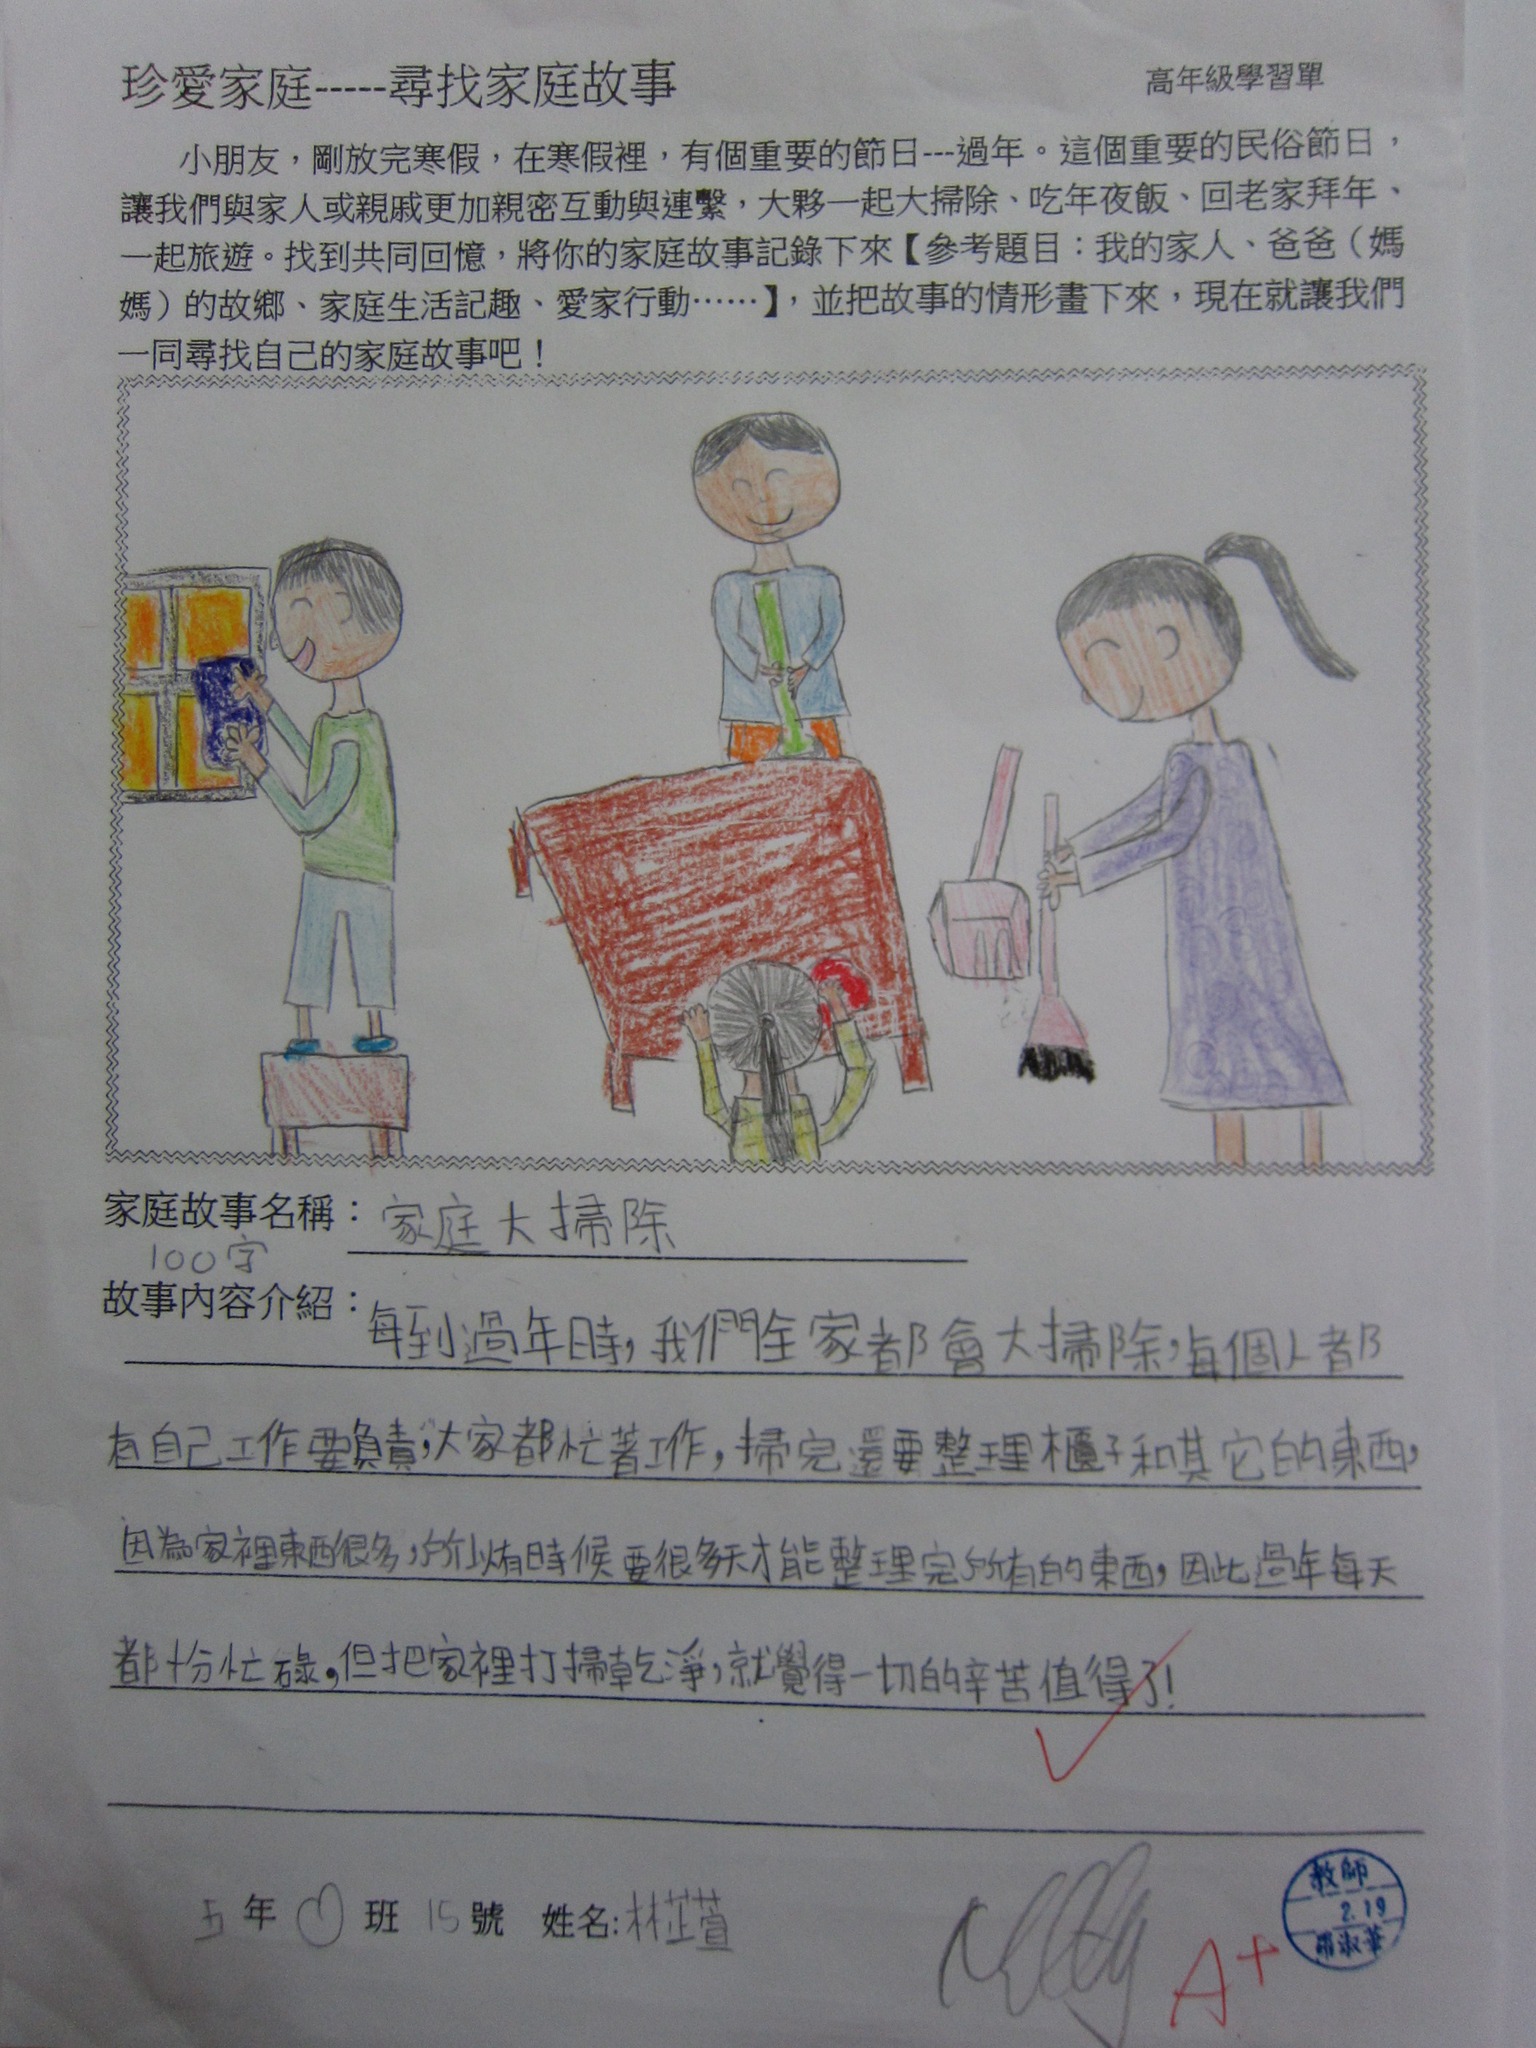 珍愛家庭-----尋找家庭故事
高年級學習單
小朋友，剛放完寒假，在寒假裡，有個重要的節日---過年。這個重要的民俗節日，
讓我們與家人或親戚更加親密互動與連繫，大夥一起大掃除、吃年夜飯、回老家拜年、
一起旅遊。找到共同回憶，將你的家庭故事記錄下來【參考題目：我的家人、爸爸（媽
媽）的故鄉、家庭生活記趣、愛家行動……】，並把故事的情形畫下來，現在就讓我們
一同尋找自己的家庭故事吧！
家庭故事名稱：家庭大掃除
100字
故事內容介紹：每到過年時，我們全家都會大掃除，每個人都
有自己工作要負責，大家都忙著工作，掃完還要整理櫃子和其它的東西，
因為家裡東西很多，所以有時候要很多天才能整理完所有的東西，因此過年每天
都十份忙碌，但把家裡打掃乾淨，就覺得一切的辛苦值得了！
五年 班 15號 姓名:林芷萱
A+
教師
2.19
淑華